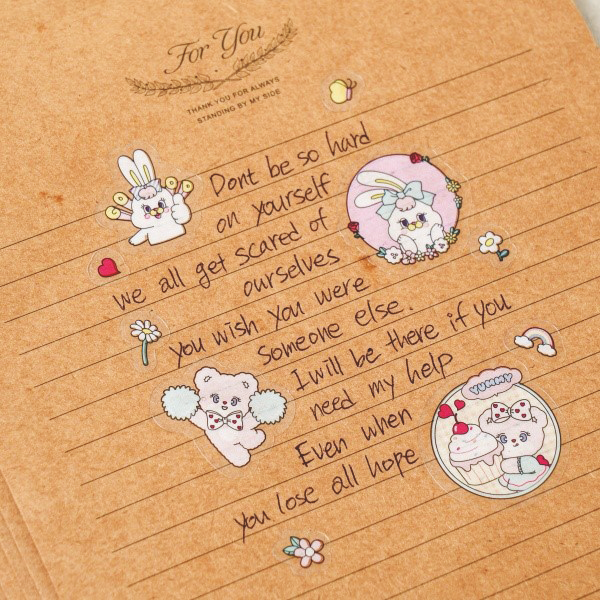 For You
THANK YOU FOR ALWAYS
STANDING BY MY SIDE
Dont be so hard
on yourself
we all get scared of
ourselves
you wish you were
someone else.
I will be there if you
need my help
Even when
you lose all hope
YUMMY